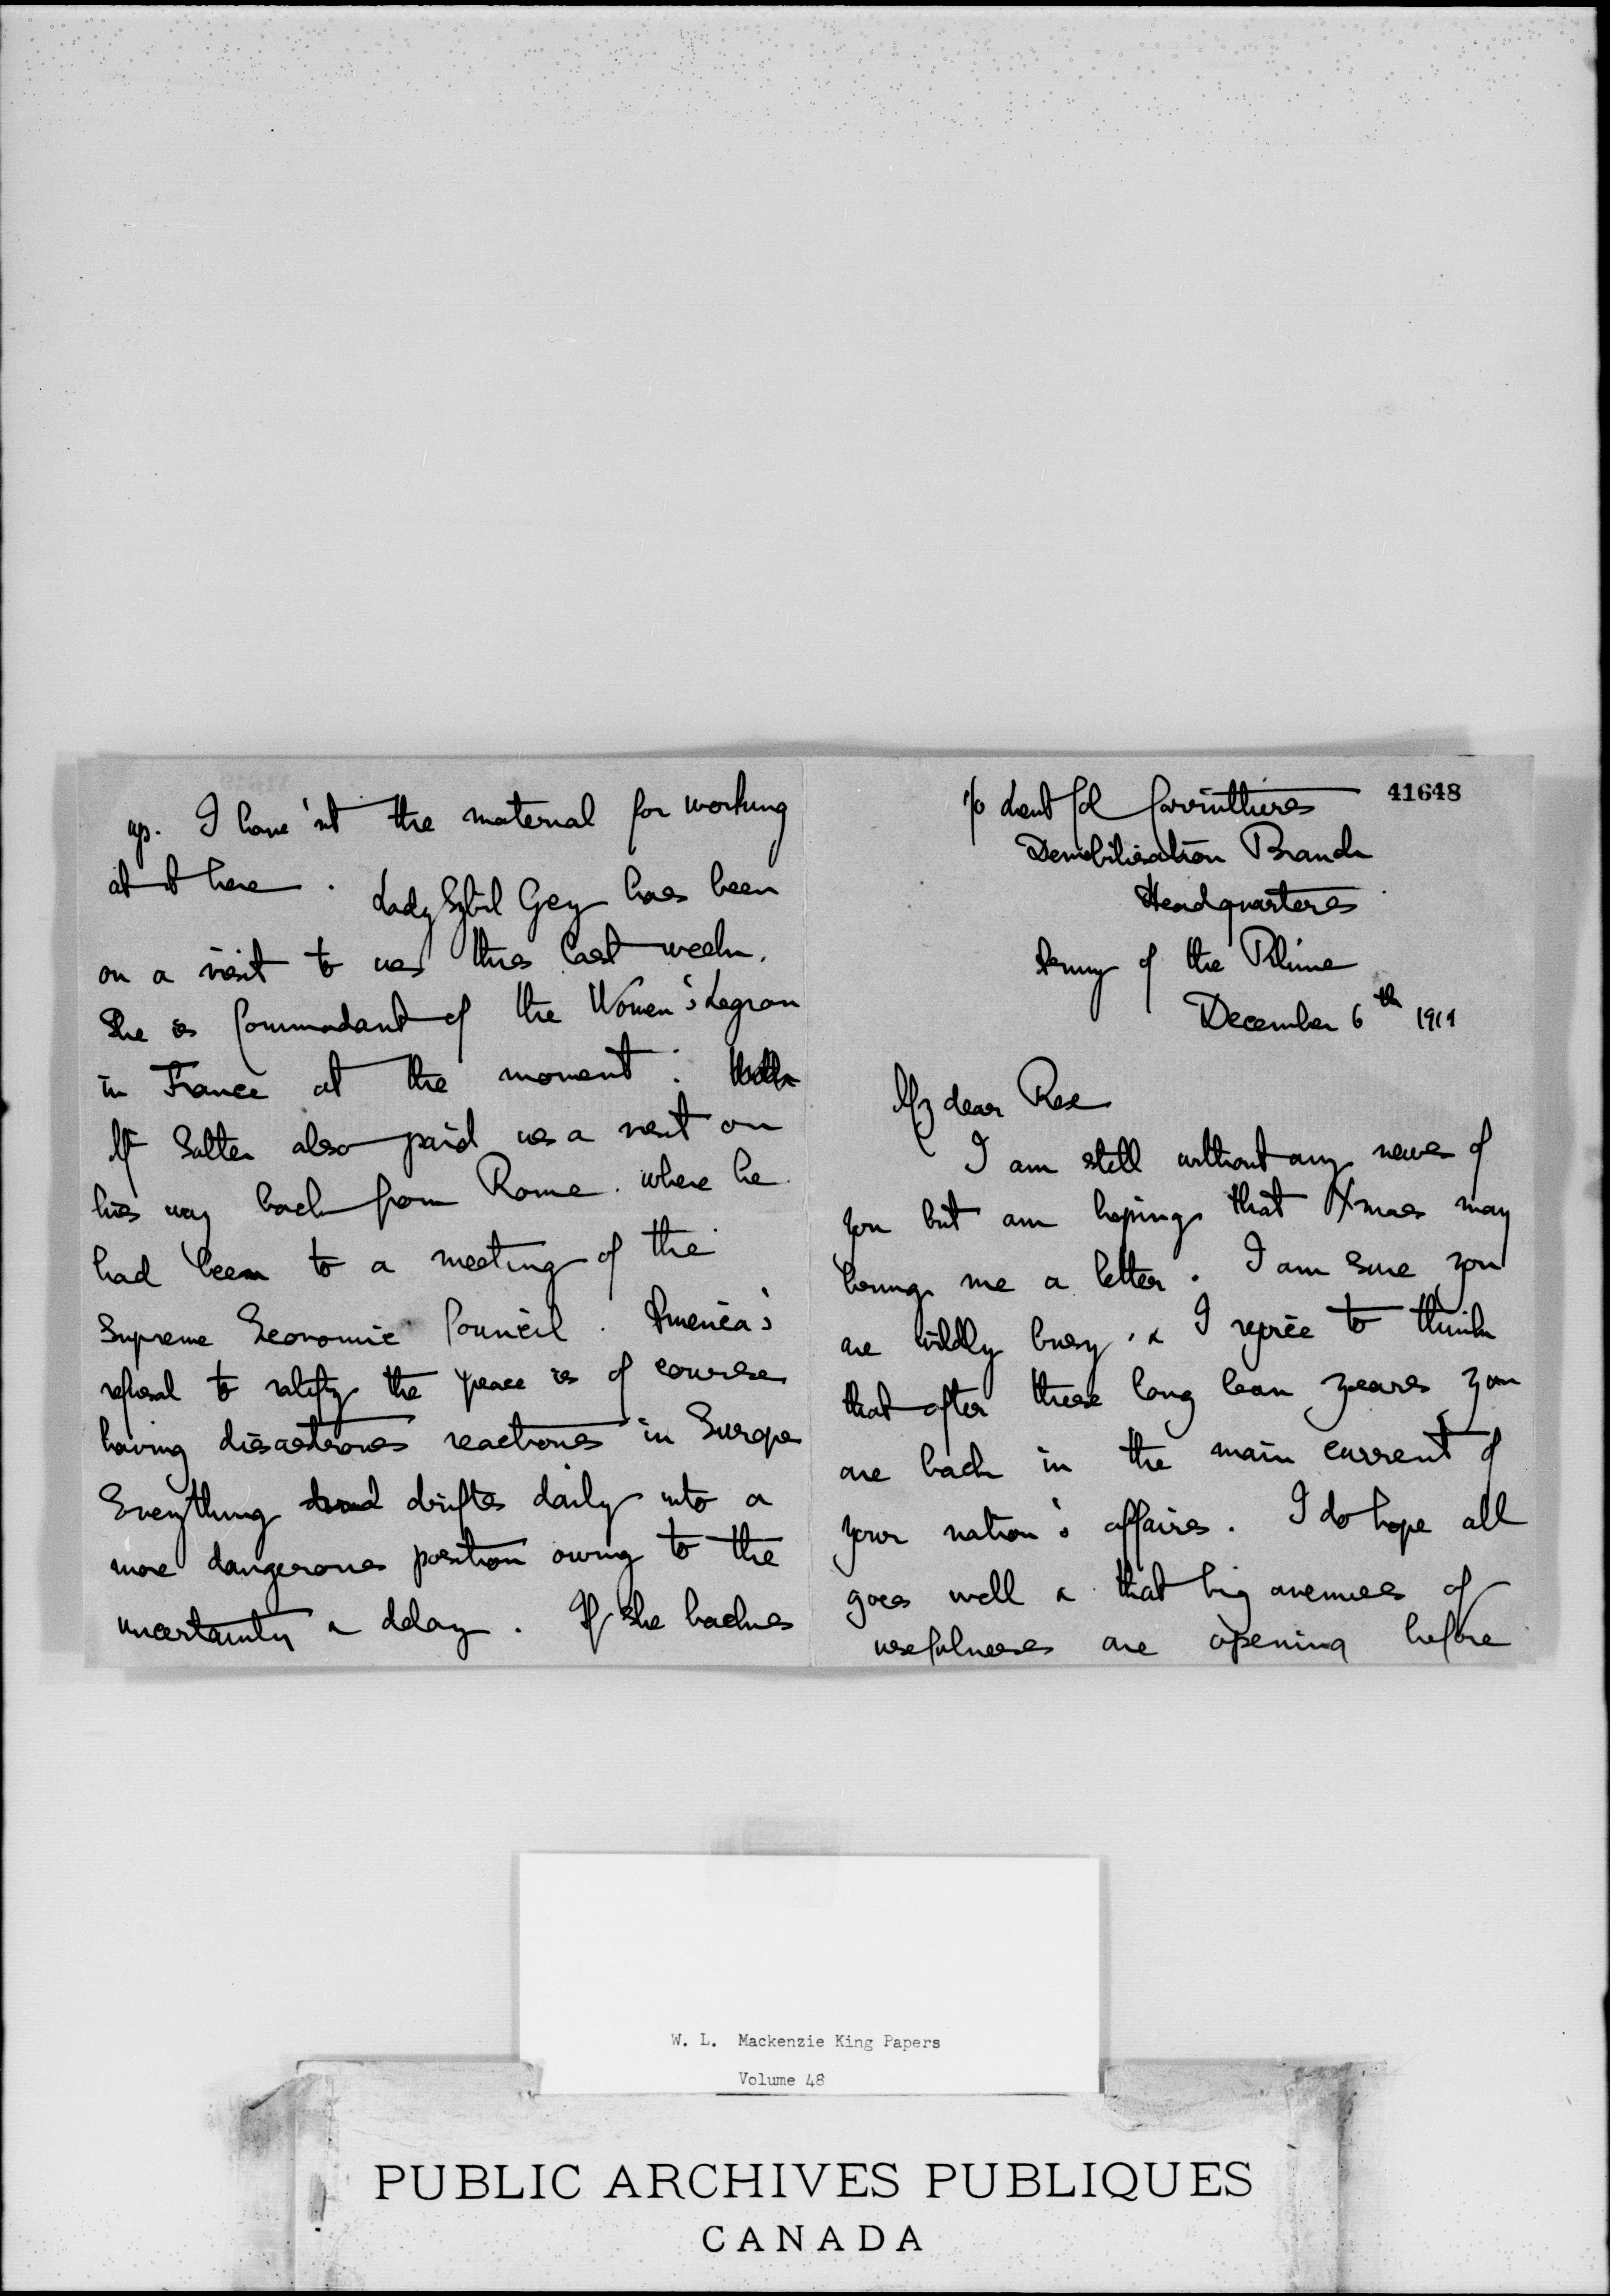 up. I have'nt the material for working
at it here. Lady Sybil Grey has been
on a visit to us this last week.
She is Commadant of the Women's Legion
in France at the moment.
Mr Salter also paid us a visit on
his way back from Rome where he
had been to a meeting of the
Supreme Economic Council. America's
refusal to ratify the peace is of course
having disastrous reactions in Europe
Everything drifts daily into a
more dangerous position owing to the
uncertainty & delay. If she backs
c/o Lieut Col Carruthers 41648
Demobilisation Branch
Headquarters
Army of the Rhine
December 6th 1919
My dear Rex
I am still without any news of
you but am hoping that Xmas may
bring me a letter. I am sure you
are wildly busy & I rejoice to think
that after these long lean years you
are back in the main current of
your nation's affairs. I do hope all
goes well & that big avenues of
usefulness are opening before
W. L. Mackenzie King Papers
Volume 48
PUBLIC ARCHIVES PUBLIQUES
CANADA